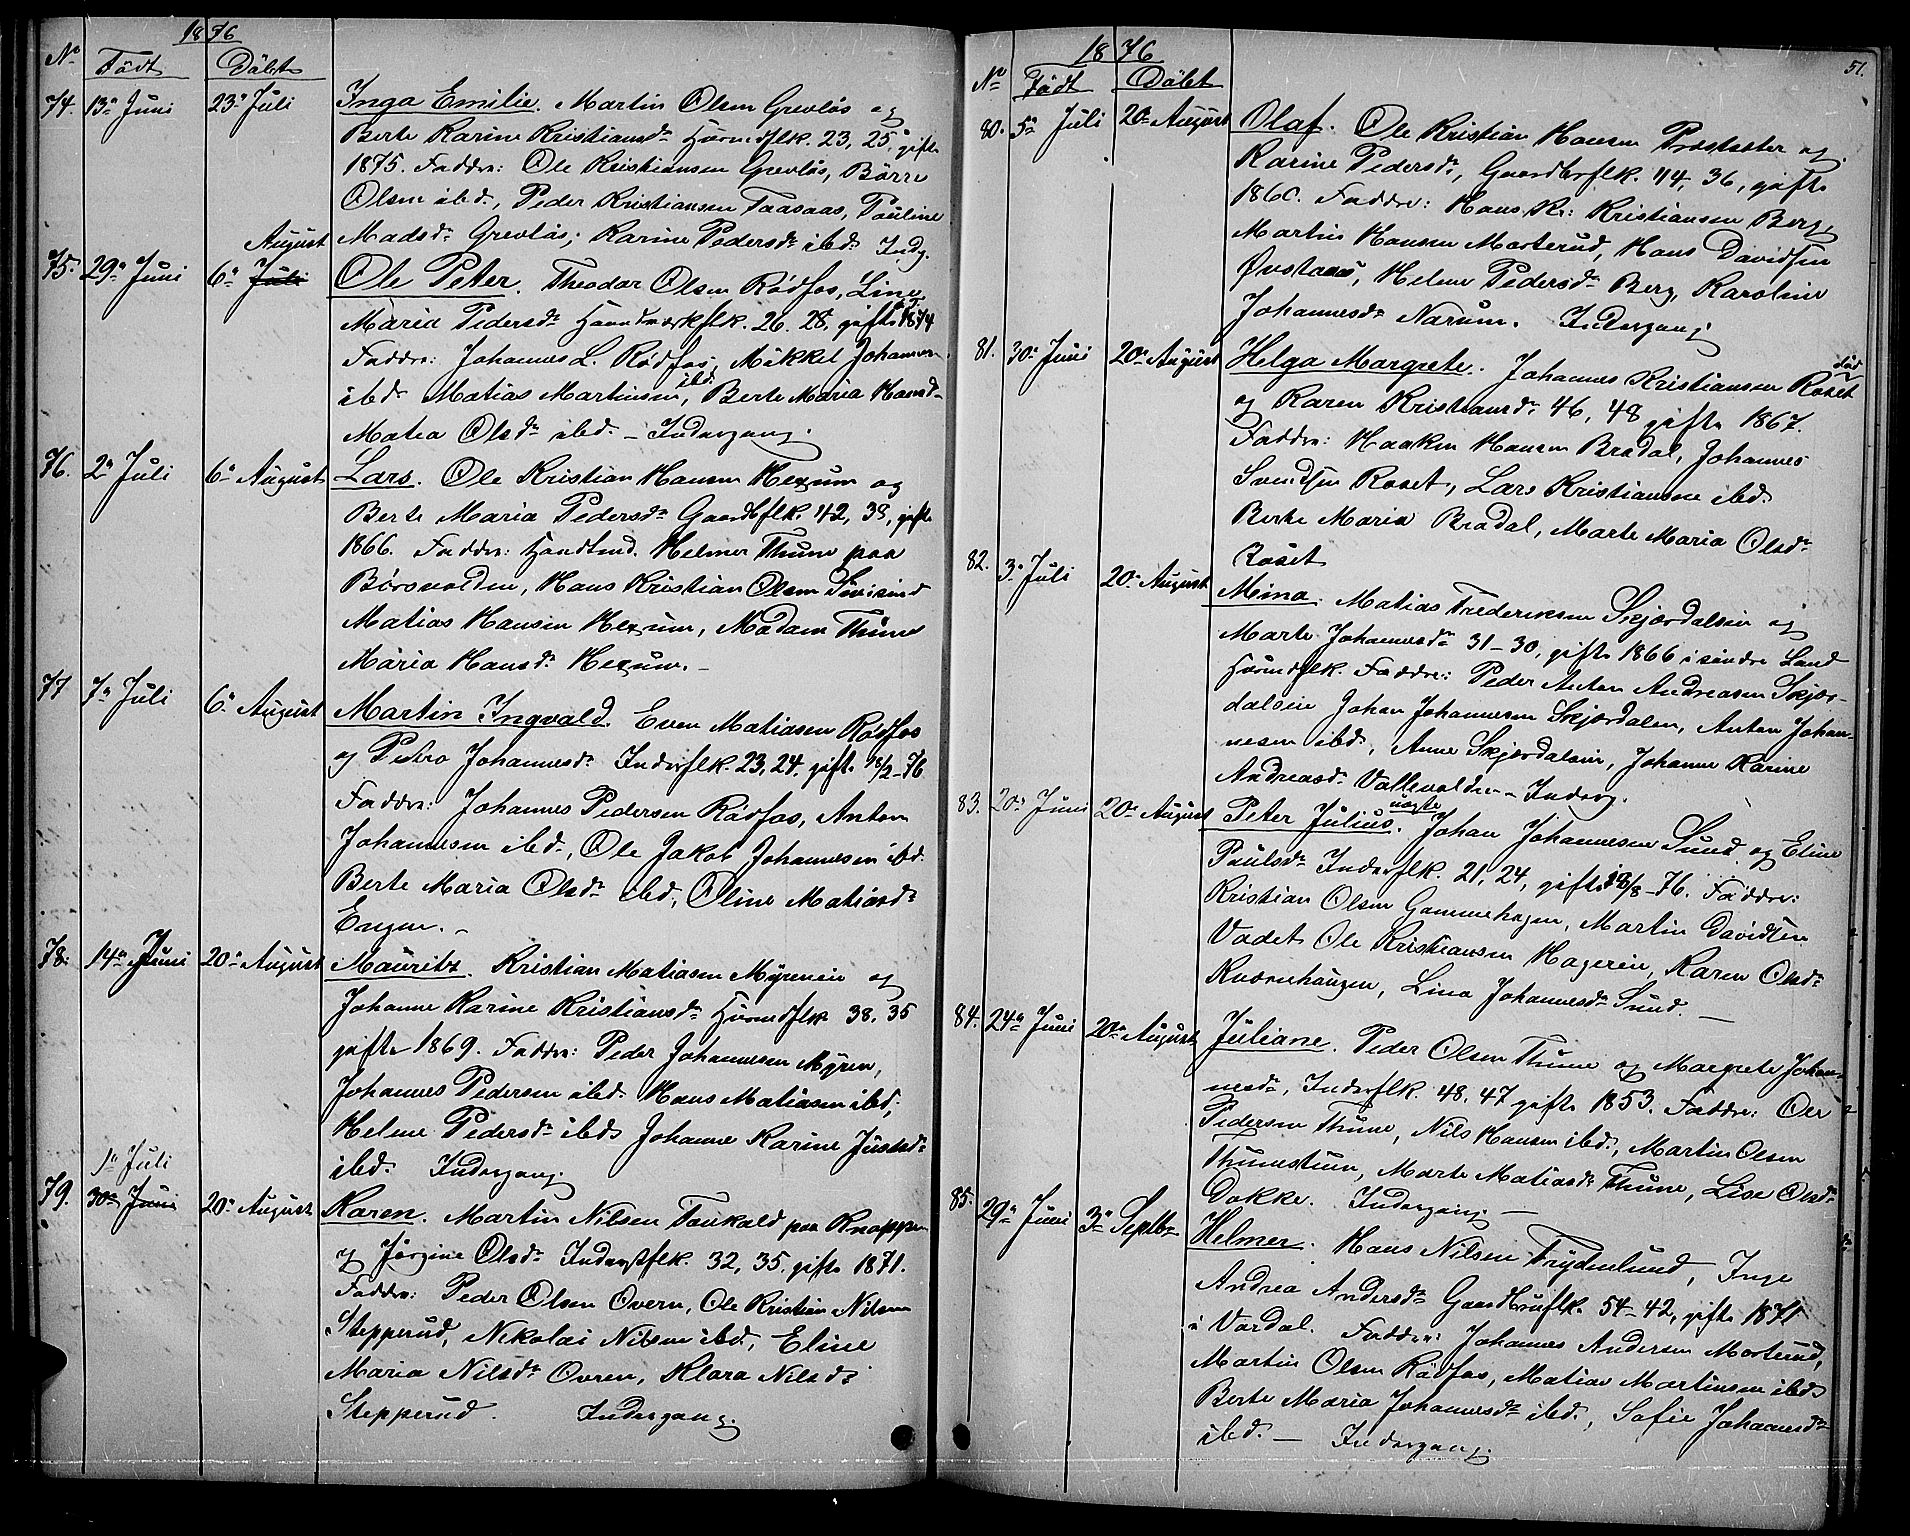 1876
No Födt Döbt
74. 13de Juni 23de Juli Inga Emilie. Martin Olsen Grevlös og
Berte Karine Kristiansdr Huusmdflk. 23, 25, gifte
1875. Faddre: Ole Kristiansen Grevlös, Börre
Olsen ibd., Peder Kristiansen Taasaas, Pauline
Madsdr Grevlös, Karine Pedersdr ibd. Indg.
August
75. 29de Juni 6te Juli Ole Peter. Theodor Olsen Rödfos, Line
Maria Pedersdr Haandværkflk. 26. 28, gifte 1874
Faddre: Johannes L. Rödfos, Mikkel Johannesen
ibd. Matias Martinsen ibd., Berte Maria Hansd.
Matea Olsdr ibd. – Indergang.
76. 2de Juli 6te August Lars. Ole Kristian Hansen Hexum og
Berte Maria Pedersdr Gaardbflk. 42, 38, gifte
1866. Faddre: Handlsmd. Helmer Thune paa
Börsvolden, Hans Kristian Olsen
Matias Hansen Hexum, Madam Thune
Maria Hansdr Hexum. –
77 7de Juli 6te August Martin Ingvald. Even Matiasen Rödfos
og Petra Johannesdr Inderflk. 23, 24, gifte 18/2-76
Faddre: Johannes Pedersen Rödfos, Anton
Johannesen ibd., Ole Jakob Johannesen ibd.
Berte Maria Olsdr ibd., Oline Matiasdr
Engen. –
78. 14de Juni 20de August Mauritz. Kristian Matiasen Myreneie og
Johanne Karine Kristiansdr Huusmdflk 38. 35
gifte 1869. Faddre: Peder Johannesen Myren,
Johannes Pedersen ibd. Hans Matiasen ibd.,
Helene Pedersdr ibd. Johanne Karine Justsdr
ibd. Indergang
1ste Juli
79. 30de Juni 20de August Karen. Martin Nilsen Taukald paa Knappen
og Jörgine Olsdr Inderstflk. 32, 35, gifte 1871.
Faddre: Peder Olsen Overn, Ole Kristian Nilsen
Stepperud, Nikolai Nilsen ibd., Eline
Maria Nilsdr Ovren, Klara Nilsdr
Stepperud. Indergang.
51.
1876
No Födt Döbt
80. 5te Juli 20de August Olaf. Ole Kristian Hansen Præstsæter og
Karine Pedersdr, Gaardbrflk. 44, 36, gifte
1860. Faddre: Hans Kr: Kristiansen Berg,
Martin Hansen Marterud, Hans Davidsen
Øvstaas, Helene Pedersdr Berg, Karoline
Johannesdr Narum. Indergang
81. 30de Juni 20de August Helga Margrete. Johannes Kristiansen Roset
og Karen Kristiansdr 46, 48 gifte 1867.
Faddre: Haaken Hansen Bradal, Johannes
Svendsen Roset, Lars Kristiansen ibd.
Berte Maria Bradal, Marte Maria Olsdr
Roset
82. 3de Juli 20de August Mina. Matias Frederiksen Skjærdalseie og
Marte Johannesdr 31-30, gifte 1866 i söndre Land
Huusmdflk. Faddre: Peder Anton Andreasen Skjær-
dalseie Johan Johannesen Skjærdalen, Anton Johan-
nesen ibd., Anne Skjærdalseie, Johanne Karine
Andreasdr Vollevolden – Inderg.
83. 20de Juni 20de August Peter Julius. uægte Johan Johannesen Sund og Eline
Paulsdr Inderflk. 21, 24, gifte /8-76. Faddre:
Kristian Olsen Gammehagen, Martin Davidsen
Vadet Ole Kristiansen Hageeie, Karen Olsdr
Kværnhaugen, Lina Johannesdr Sund. –
84. 24de Juni 20de August Juliane. Peder Olsen Thune og Margrete Johan-
nesdr, Inderflk. 48, 47 gifte 1853. Faddre: Ole
Pedersen Thune, Nils Hansen ibd., Martin Olsen
Thunestuen, Marte Matiasdr Thune, Lise Olsdr
Dokke. Indergang –
85. 29de Juni 3de Septbr Helmer. Hans Nilsen Frydenlund, Inge
Andrea Andersdr Gaardbrflk. 54-42, gifte 1871
i Vardal. Faddre: Johannes Andersen Marterud,
Martin Olsen Rödfos, Matias Martinsen ibd.
Berte Maria Johannesdr ibd., Sofie Johannesdr
ibd. – Indergang.